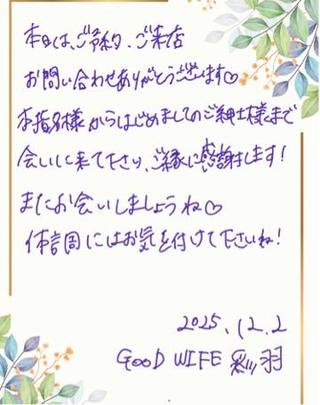 本日は、ご予約、ご来店
お問い合わせありがとうございます♡
本指名様からはじめましてのご紳士様まで
会いに来て下さり、ご縁に感謝します!
またお会いしましょうね♡
体調面にはお気を付けて下さいね!
2025.12.2
GOOD WIFE 彩羽